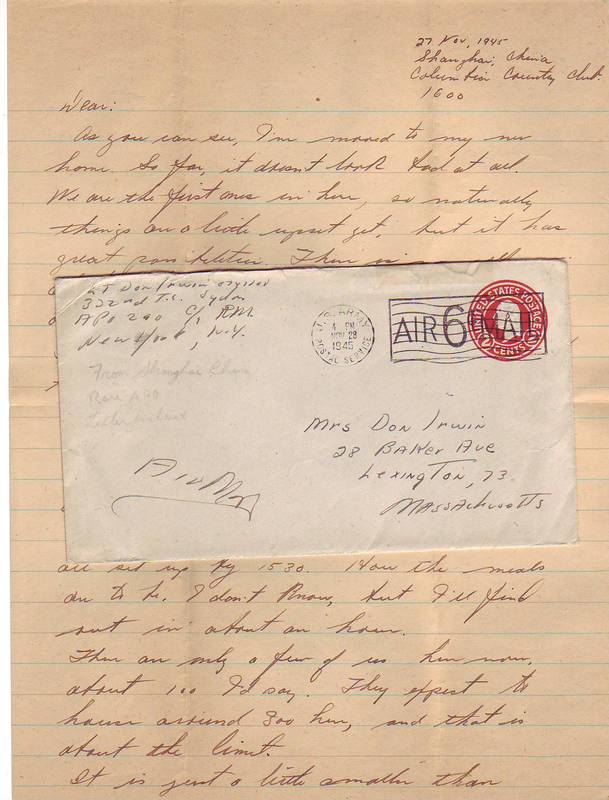 27 Nov, 1945
Shanghai, China
Columbia Country Club.
1600
Dear:
As you can see, I'm moved to my new
home. So far, it doesn't look bad at all.
We are the first ones in here, so naturally
things are a little upset yet, but it has
great possibilities. There is
Lt Don Irwin
332nd T.C. Sqdn
APO 290 c/o PM
New York, N.Y.
From Shanghai China
Rare APO
Letter
U.S. ARMY
4 PM
NOV 28
1945
POSTAL SERVICE
AIR 6 MAIL
UNITED STATES POSTAGE
CENTS
Mrs Don Irwin
28 Baker Ave
Lexington, 73
Massachusetts
Air Mail
all set up by 1530. How the meals
are to be, I don't know, but I'll find
out in about an hour.
There are only a few of us here now,
about 100 I'd say. They expect to
house around 300 here, and that is
about the limit.
It is just a little smaller than